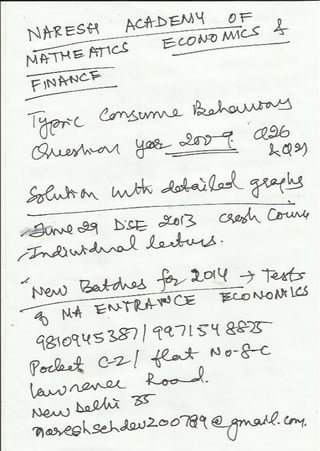 NARESH ACADEMY OF
MATHEATICS ECONOMICS &
FINANCE
Topic Consume Behaviour
Question year 2009 Q26
& Q27
Solution with detailed graphs
June 29 DSE 2013 Crash Course
Individual lecture.
New Batches for 2014 → Tests
of MA ENTRANCE ECONOMICS
9810945387/9971548875
Pocket C-2/ flat No-8-C
Lawrence Road.
New Delhi 35
nareshsehdev200789@gmail.com.